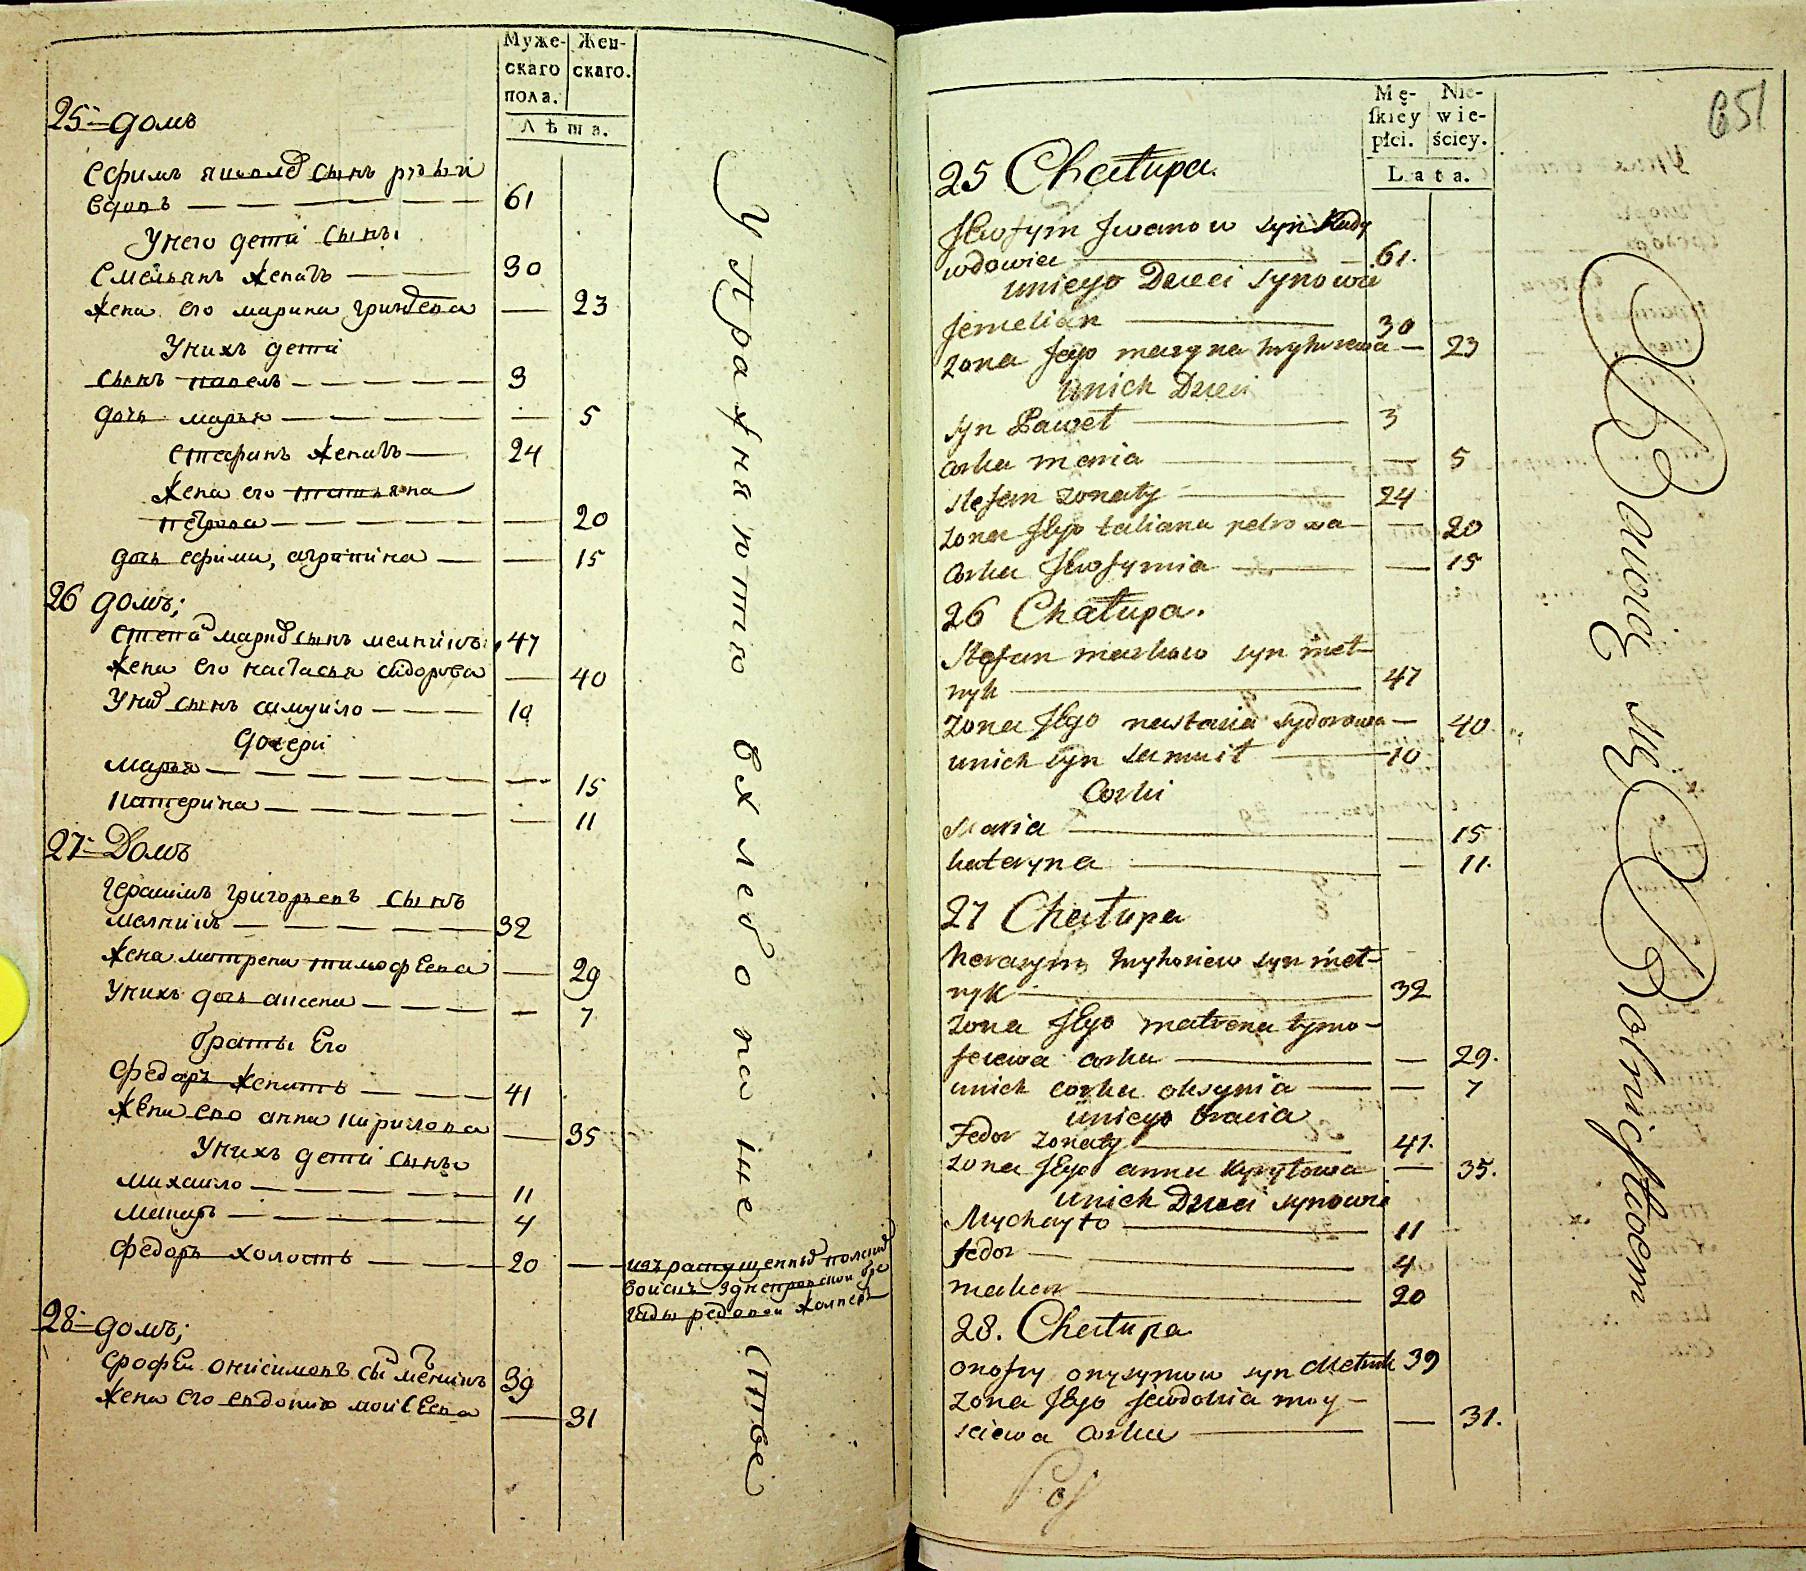 Муже-
скаго
пола.
Жен-
скаго.
Лѣта.
25 домъ
Ефимъ сынъ рудый
вдовъ 61
У него дети сыны
Емельянъ женатъ 30
жена его марина 23
У нихъ дети
сынъ павелъ 3
дочь марья 5
Стефанъ женатъ 24
жена его татьяна
петрова 20
дочь ефима, агрипина 15
26 домъ;
Степа марко сынъ мелникъ 47
жена его настасья сидорова 40
У них сынъ самуило 10
дочери
марья 15
катерина 11
27 домъ
Герасимъ григорьевъ сынъ
мелникъ 32
жена матрена тимофеева 29
У нихъ дочь аксенa 7
братьы Его
Федоръ женатъ 41
жена его анна кирилова 35
У нихъ дети сыны
михаило 11
макаръ 4
федоръ холостъ 20
изъ распущенных полских
войскъ днепровской бри
гады рядовой
28 домъ;
ерофеи онисимовъ сы мелникъ 39
жена его евдокия моисеева 31
Упражняются в хлебопашестве
651
Mę-
skiey
płci.
Nie-
wie-
ściey.
Lata.
25 Chałupa.
Jewfym Iwanow syn Rudy
wdowiec 61.
unieyo Dzieci synowa
Jemelian 30
zona Jeyo maryna hryhorewa 23
unich Dzieci
syn Paweł 3
corka maria 5
stefan zonaty 24
zona Jeyo tatiana petrowa 20
corka Jewfymia 15
26 Chałupa.
Stefan markow syn miel-
nyk 47
zona Jego nastazia sydorowa 40
unich syn samuił 10
Corki
Maria 15
kateryna 11.
27 Chałupa
herasym hryhoriew syn miel-
nyk 32
zona Jeyo matrona tymo-
feiewa corka 29.
unich corka oksynia 7
unieyo bracia
Fedor zonaty 41.
zona Jeyo anna kyryłowa 35.
unich Dzieci synowie
Mychayło 11
fedor 4
makar 20
28. Chałupa
onofry onysymow syn Mielnik 39
zona Jeyo Jewdokia moy-
siewa corka 31.
Pos
Bawią się Rolnictwem